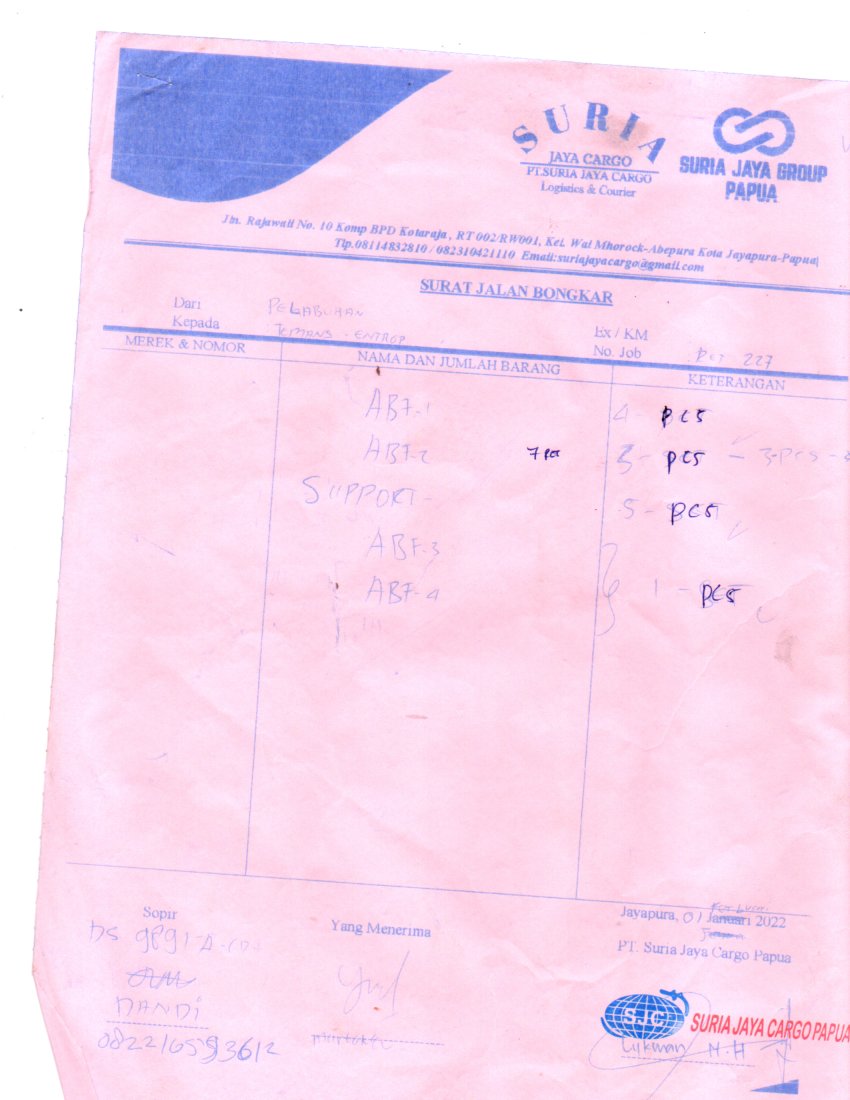 SURIA
JAYA CARGO
PT.SURIA JAYA CARGO
Logistics & Courier
SURIA JAYA GROUP
PAPUA
Jln. Rajawali No. 10 Komp BPD Kotaraja , RT 002/RW001, Kel. Wai Mhorock-Abepura Kota Jayapura-Papua
Tlp.08114832810 / 082310421110 Email:suriajayacargo@gmail.com
SURAT JALAN BONGKAR
Dari PELABUHAN
Kepada - ENTROP
Ex / KM
No. Job 227
MEREK & NOMOR NAMA DAN JUMLAH BARANG KETERANGAN
ABF-1 4 - PCS
ABF-2 7 PCS 3 - PCS - 3-PCS -
SUPPORT - 5 - PCS
ABF-3
ABF-4 1 - PCS
Sopir Yang Menerima Jayapura, 01 Januari 2022
PT. Suria Jaya Cargo Papua
DS
NANDI
082216593612
SJC SURIA JAYA CARGO PAPUA
Lukman N.H